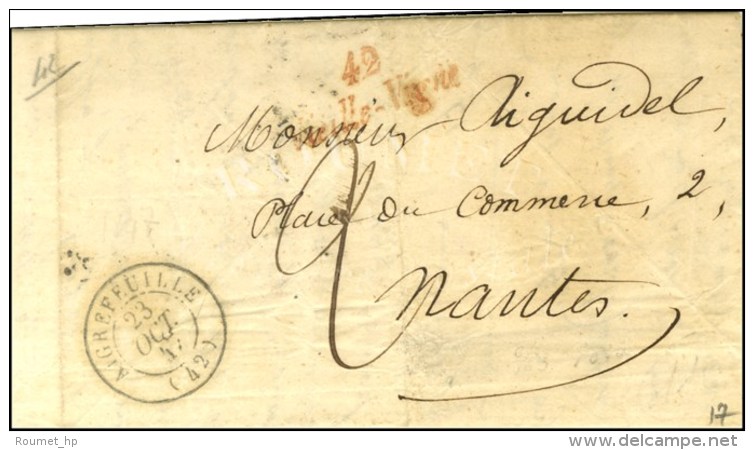 42
42
Vieille-Vigne
Monsieur Aiguidel,
Place du Commerce, 2,
2
Nantes.
1847
AIGREFEUILLE
23
OCT.
47
(42)
17
Roumet_hp
www.delcampe.net